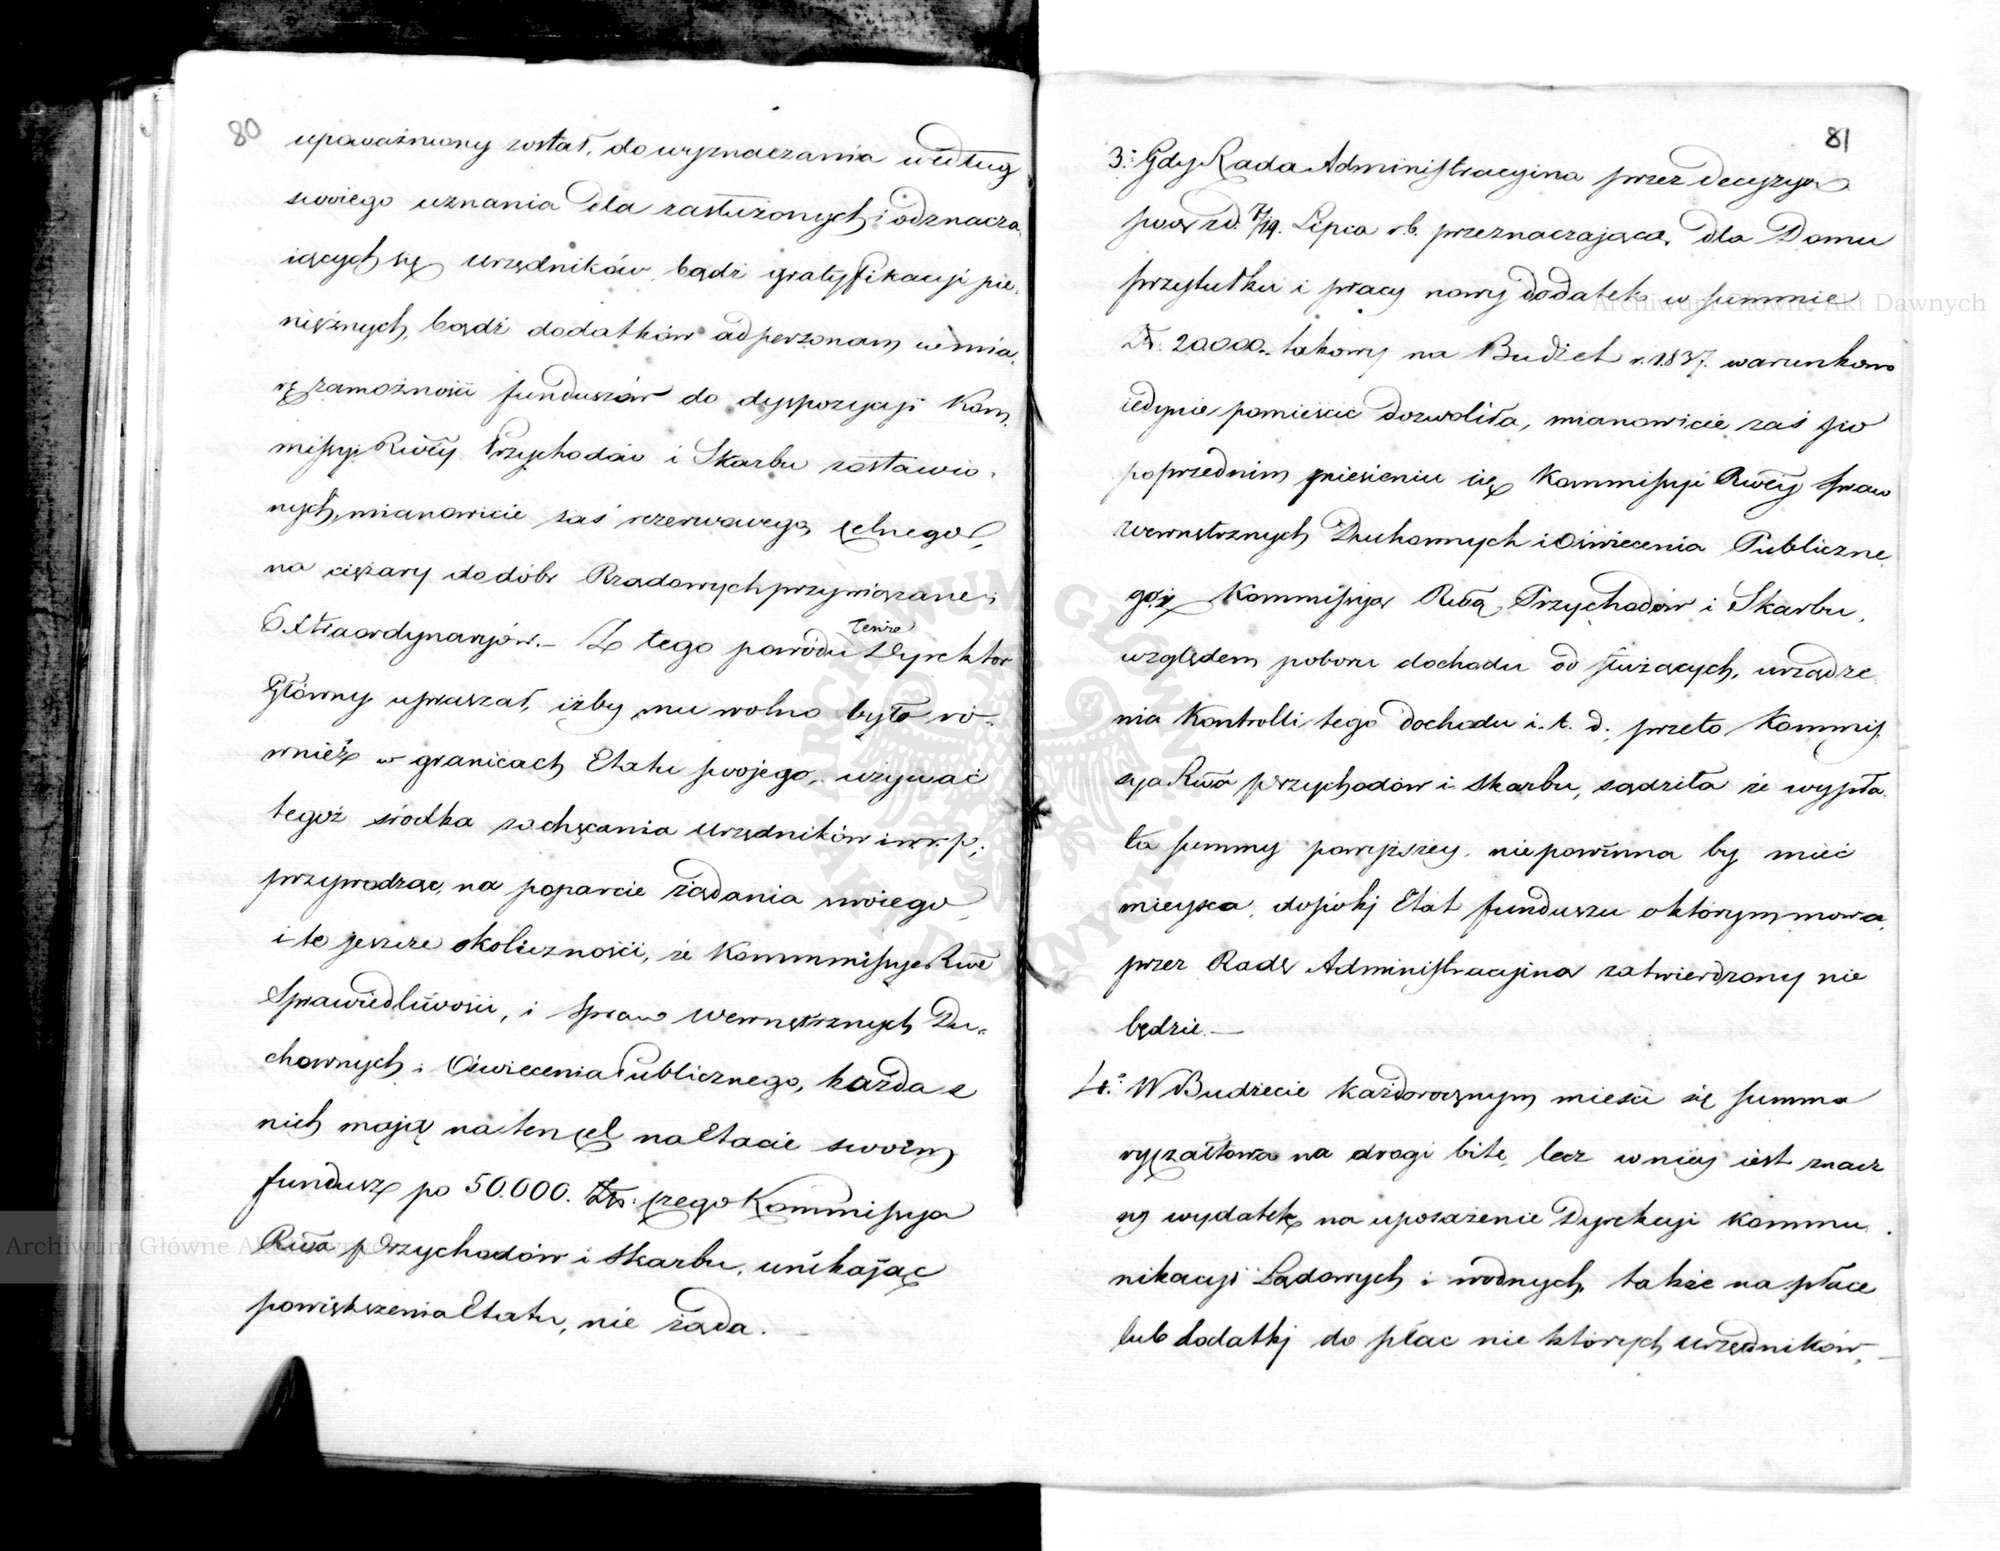 80
upoważniony został, do wyznaczania według
swoiego uznania dla zasłużonych i odznacza
iących się urzędników, bądź gratyfikacyi pie,
niężnych, bądź dodatków ad personam w mia,
rę zamożności funduszów do dyspozycyi Kom,
missyi Rwéy Przychodów i Skarbu zostawio,
nych, mianowicie zaś rezerwowego, celnego,
na ciężary do dóbr Rządowych przywiązane i
Extraordynaryów. – Z tego powodu tenże Dyrektor
Główny upraszał, iżby mu wolno było ró-
wnież w granicach Etatu swojego, używać
tegoż środka zachęcania Urzędników i w. p;
przywodząc, na poparcie żądania swoiego,
i te jeszcze okoliczności, że Kommmissye Rwe
Sprawiedliwości, i Spraw Wewnętrznych Du-
chownych i Oświecenia Publicznego, każda z
nich mają na ten cel na Etacie swoim
fundusz po 50.000. Złp. czego Kommissya
Rwa Przychodów i Skarbu, unikając
powiększenia Etatu, nie żąda. –
81
3.° Gdy Rada Administracyina przez decyzyą
pod d. 7/19. Lipca r.b. przeznaczającą, dla Domu
przytułku i pracy nowy dodatek w summie
Zł. 20000. takowy na Budżet r. 1837. warunkowo
iedynie pomieścić dozwoliła, mianowicie zaś po
poprzednim zniesieniu się Kommissyi Rwéy Spraw
Wewnętrznych Duchownych i Oświecenia Publiczne,
go, z Kommissyą Rwą Przychodów i Skarbu,
względem poboru dochodu od służących, urządze
nia Kontrolli tego dochodu i. t. d; przeto Kommis
sya Rwa przychodów i Skarbu, sądziła że wypła,
ta summy powyższey, niepowinna by mieć
mieysca, dopóki Etat funduszu o którym mowa,
przez Radę Administracyina zatwierdzony nie
będzie. –
4.° W Budżecie każdorocznym mieści się summa
ryczałtowa na drogi bite, lecz w niéy iest znacz
ny wydatek na uposażenie Dyrekcyi Kommu
nikacyi Lądowych i wodnych, także na płace
lub dodatki do płac nie których urzędników, –
Archiwum Główne Akt Dawnych
Archiwum Główne Akt Dawnych
ARCHIWUM GŁÓWNE AKT DAWNYCH